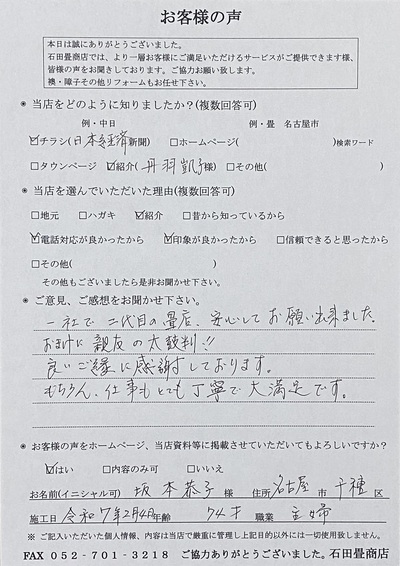 お客様の声
本日は誠にありがとうございました。
石田畳商店では、より一層お客様にご満足いただけるサービスがご提供できます様、
皆様の声をお聞きしております。ご協力お願い致します。
襖・障子その他リフォームもお任せ下さい。
◉ 当店をどのように知りましたか？(複数回答可)
例・中日 例・畳 名古屋市
☑チラシ(日本経済新聞) □ホームページ( )検索ワード
□タウンページ ☑紹介(丹羽凱子様) □その他( )
◉ 当店を選んでいただいた理由(複数回答可)
□地元 □ハガキ ☑紹介 □昔から知っているから
☑電話対応が良かったから ☑印象が良かったから □信頼できると思ったから
□その他( )
その他もございましたら是非お聞かせ下さい。
◉ ご意見、ご感想をお聞かせ下さい。
一社で二代目の畳店、安心してお願い出来ました。
おまけに親友の太鼓判!!
良いご縁に感謝しております。
もちろん、仕事もとても丁寧で大満足です。
◉ お客様の声をホームページ、当店資料等に掲載させていただいてもよろしいですか？
☑はい □内容のみ可 □いいえ
お名前(イニシャル可) 坂本恭子 様 住所 名古屋 市 千種 区
施工日 令和7年2月4月 年齢 74才 職業 主婦
※ ご記入いただいた個人情報、内容は当店で厳重に管理し上記目的以外には一切使用致しません。
FAX 052-701-3218 ご協力ありがとうございました。石田畳商店